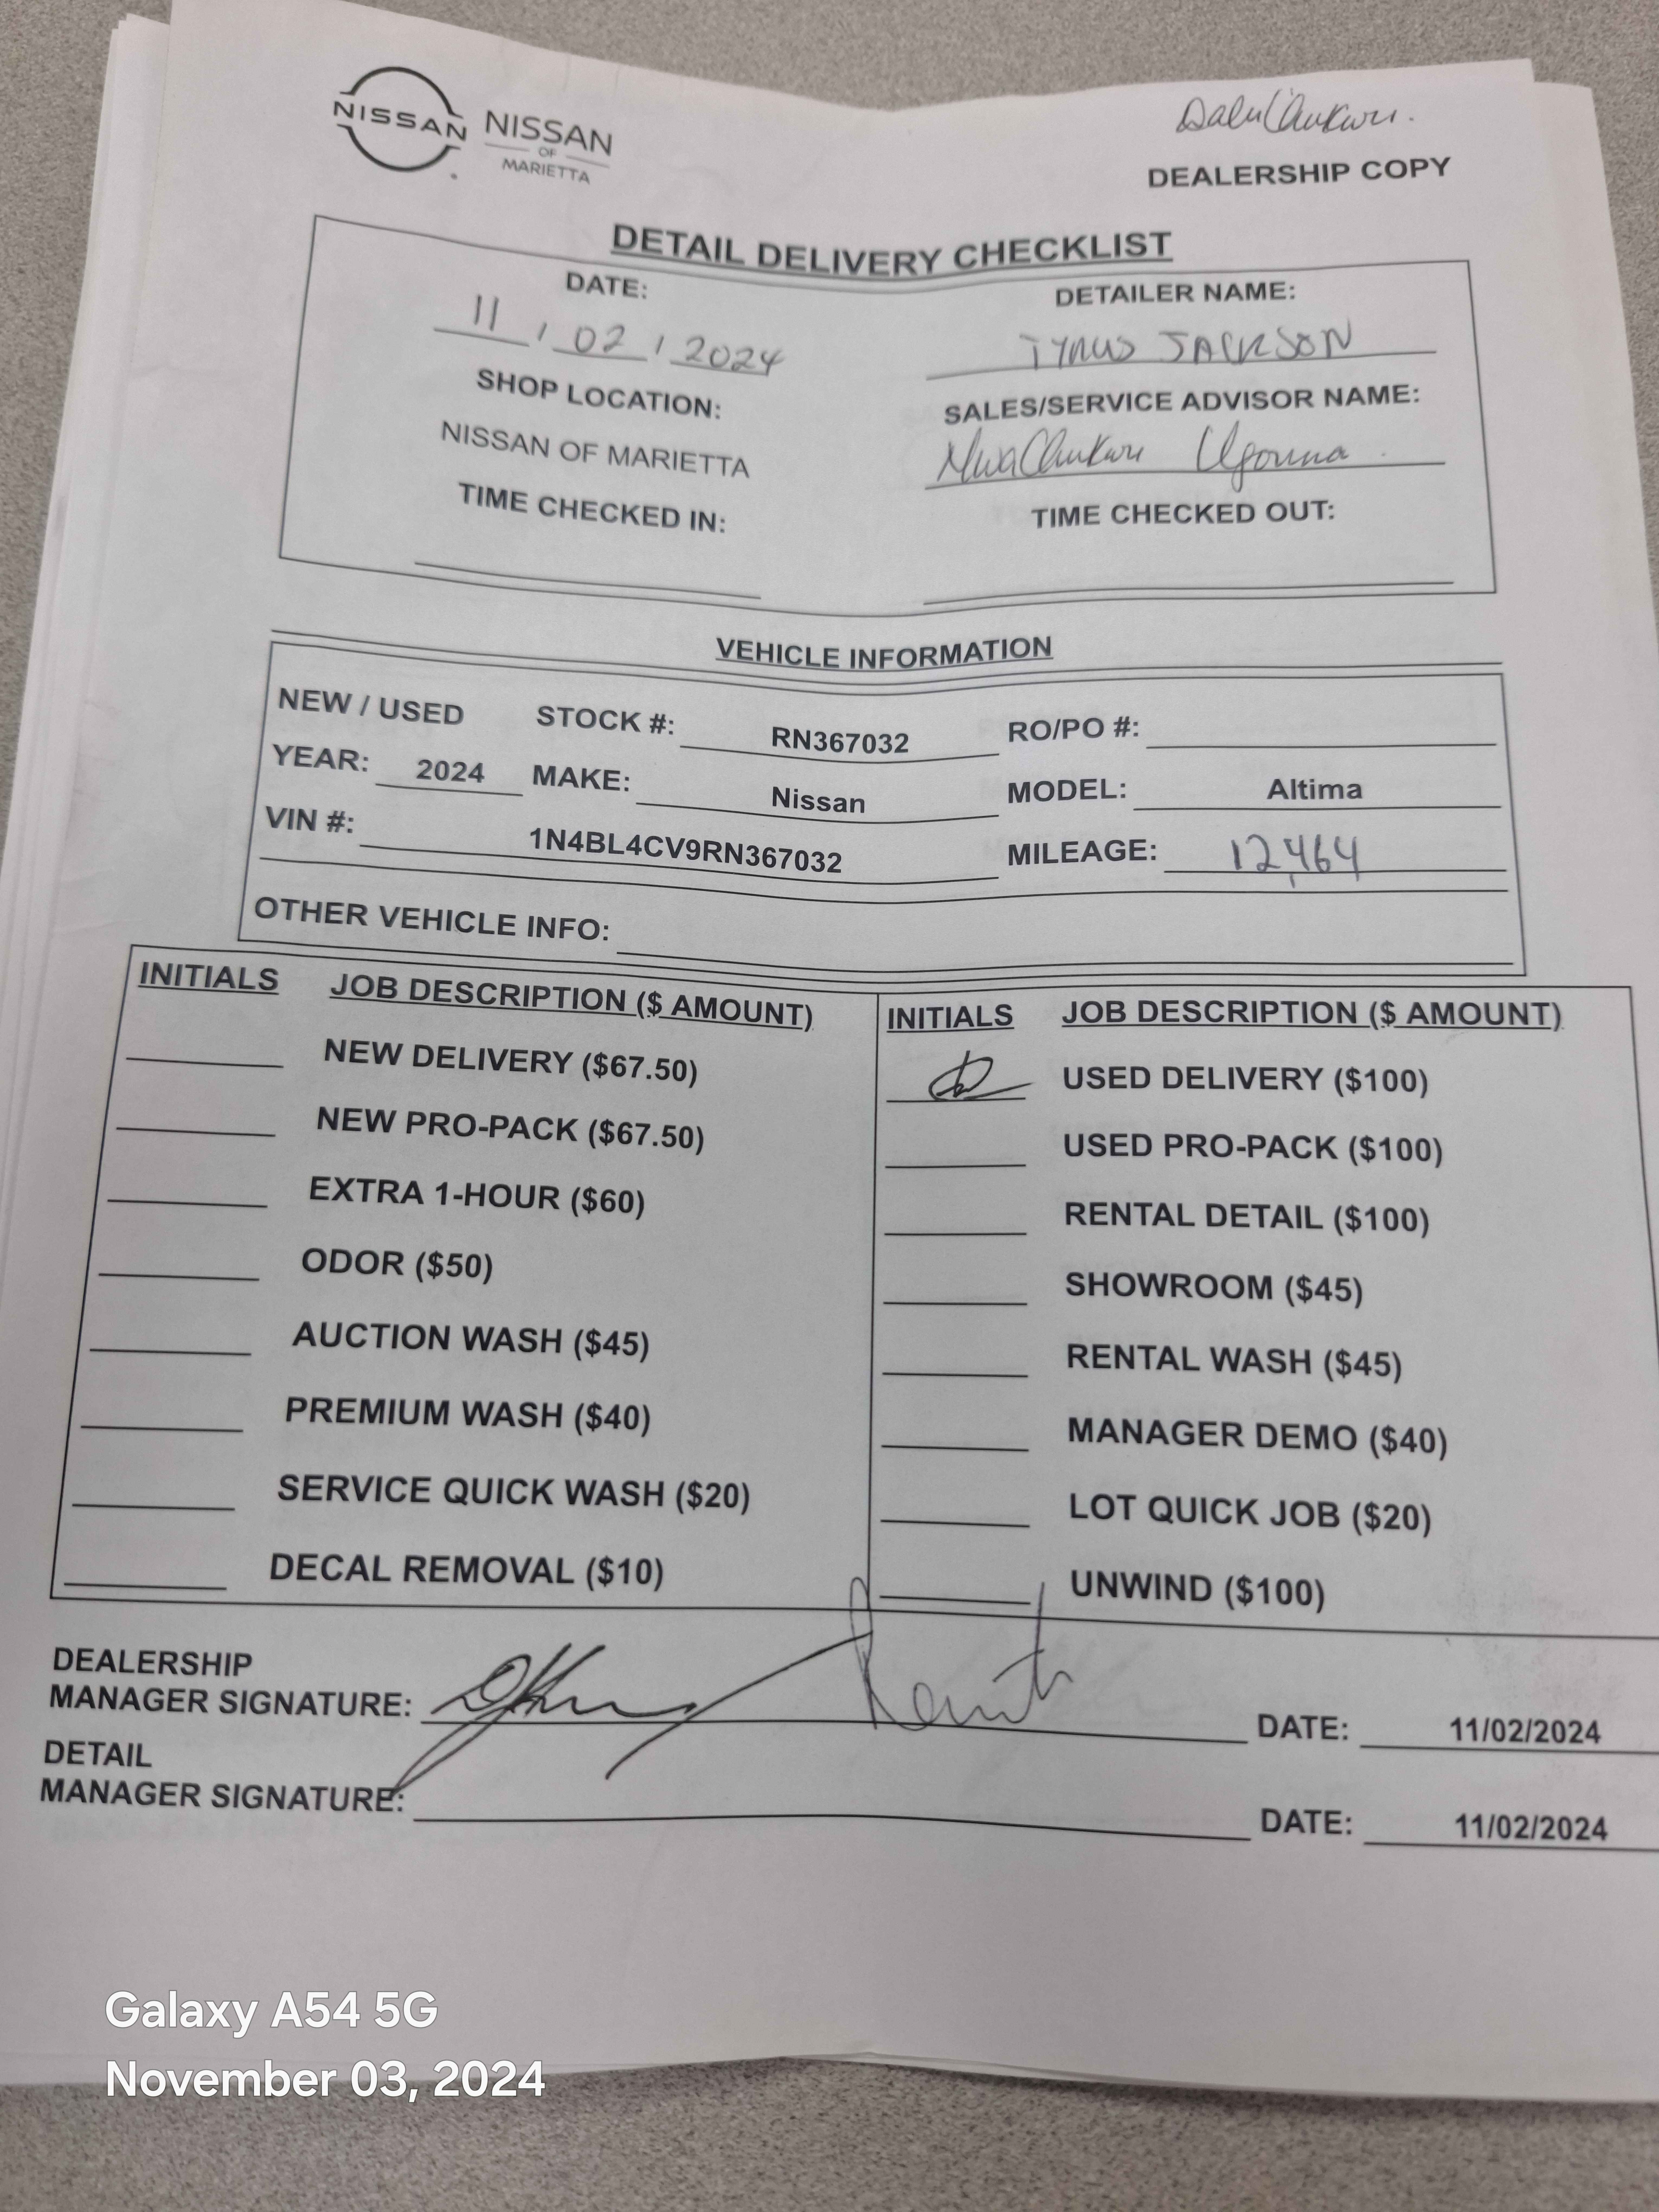 NISSAN NISSAN
OF
MARIETTA
DEALERSHIP COPY
DETAIL DELIVERY CHECKLIST
DATE: DETAILER NAME:
11 / 02 / 2024 TYRUS JACKSON
SHOP LOCATION: SALES/SERVICE ADVISOR NAME:
NISSAN OF MARIETTA NwaChukwu Ugonna
TIME CHECKED IN: TIME CHECKED OUT:
VEHICLE INFORMATION
NEW / USED STOCK #: RN367032 RO/PO #:
YEAR: 2024 MAKE: Nissan MODEL: Altima
VIN #: 1N4BL4CV9RN367032 MILEAGE: 12,464
OTHER VEHICLE INFO:
INITIALS JOB DESCRIPTION ($ AMOUNT) INITIALS JOB DESCRIPTION ($ AMOUNT)
NEW DELIVERY ($67.50) USED DELIVERY ($100)
NEW PRO-PACK ($67.50) USED PRO-PACK ($100)
EXTRA 1-HOUR ($60) RENTAL DETAIL ($100)
ODOR ($50) SHOWROOM ($45)
AUCTION WASH ($45) RENTAL WASH ($45)
PREMIUM WASH ($40) MANAGER DEMO ($40)
SERVICE QUICK WASH ($20) LOT QUICK JOB ($20)
DECAL REMOVAL ($10) UNWIND ($100)
DEALERSHIP
MANAGER SIGNATURE: DATE: 11/02/2024
DETAIL
MANAGER SIGNATURE: DATE: 11/02/2024
Galaxy A54 5G
November 03, 2024